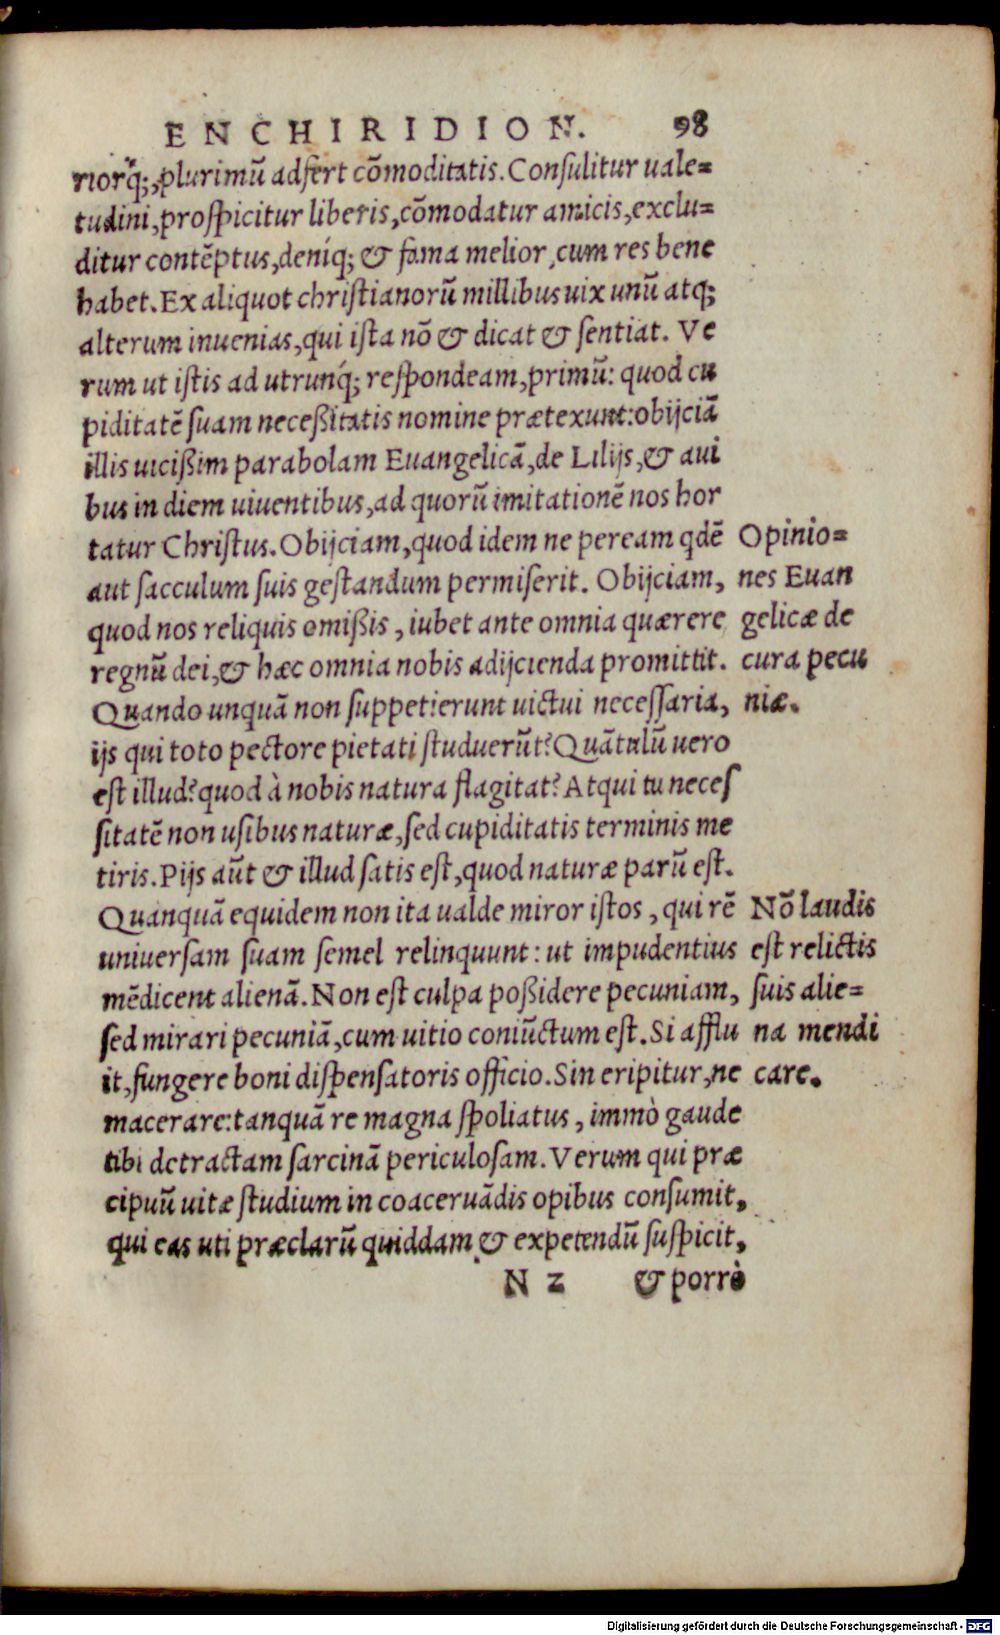 ENCHIRIDION. 98
riorq́;, plurimū adfert cōmoditatis. Consulitur uale=
tudini, prospicitur liberis, cōmodatur amicis, exclu=
ditur contēptus, deniq́; & fama melior, cum res bene
habet. Ex aliquot christianorū millibus uix unū atq;
alterum inuenias, qui ista nō & dicat & sentiat. Ve
rum ut istis ad utrunq́; respondeam, primū: quod cu
piditatē suam neceßitatis nomine prætexunt: obijciā
illis uicißim parabolam Euangelicā, de Lilijs, & aui
bus in diem uiuentibus, ad quorū imitationē nos hor
tatur Christus. Obijciam, quod idem ne peream qdē
aut sacculum suis gestandum permiserit. Obijciam,
quod nos reliquis omißis, iubet ante omnia quærere
regnū dei, & hæc omnia nobis adijcienda promittit.
Quando unquā non suppetierunt uictui necessaria,
ijs qui toto pectore pietati studuerūt? Quātulū uero
est illud? quod à nobis natura flagitat? Atqui tu neces
sitatē non usibus naturæ, sed cupiditatis terminis me
tiris. Pijs aūt & illud satis est, quod naturæ parū est.
Quanquā equidem non ita ualde miror istos, qui rē
uniuersam suam semel relinquunt: ut impudentius
mēdicent alienā. Non est culpa poßidere pecuniam,
sed mirari pecuniā, cum uitio coniūctum est. Si afflu
it, fungere boni dispensatoris officio. Sin eripitur, ne
macerare: tanquā re magna spoliatus, immò gaude
tibi detractam sarcinā periculosam. Verum qui præ
cipuū uitæ studium in coaceruādis opibus consumit,
qui eas uti præclarū quiddam & expetendū suspicit,
N 2 & porrò
Opinio=
nes Euan
gelicæ de
cura pecu
niæ.
Nō laudis
est relictis
suis alie=
na mendi
care.
Digitalisierung gefördert durch die Deutsche Forschungsgemeinschaft - DFG